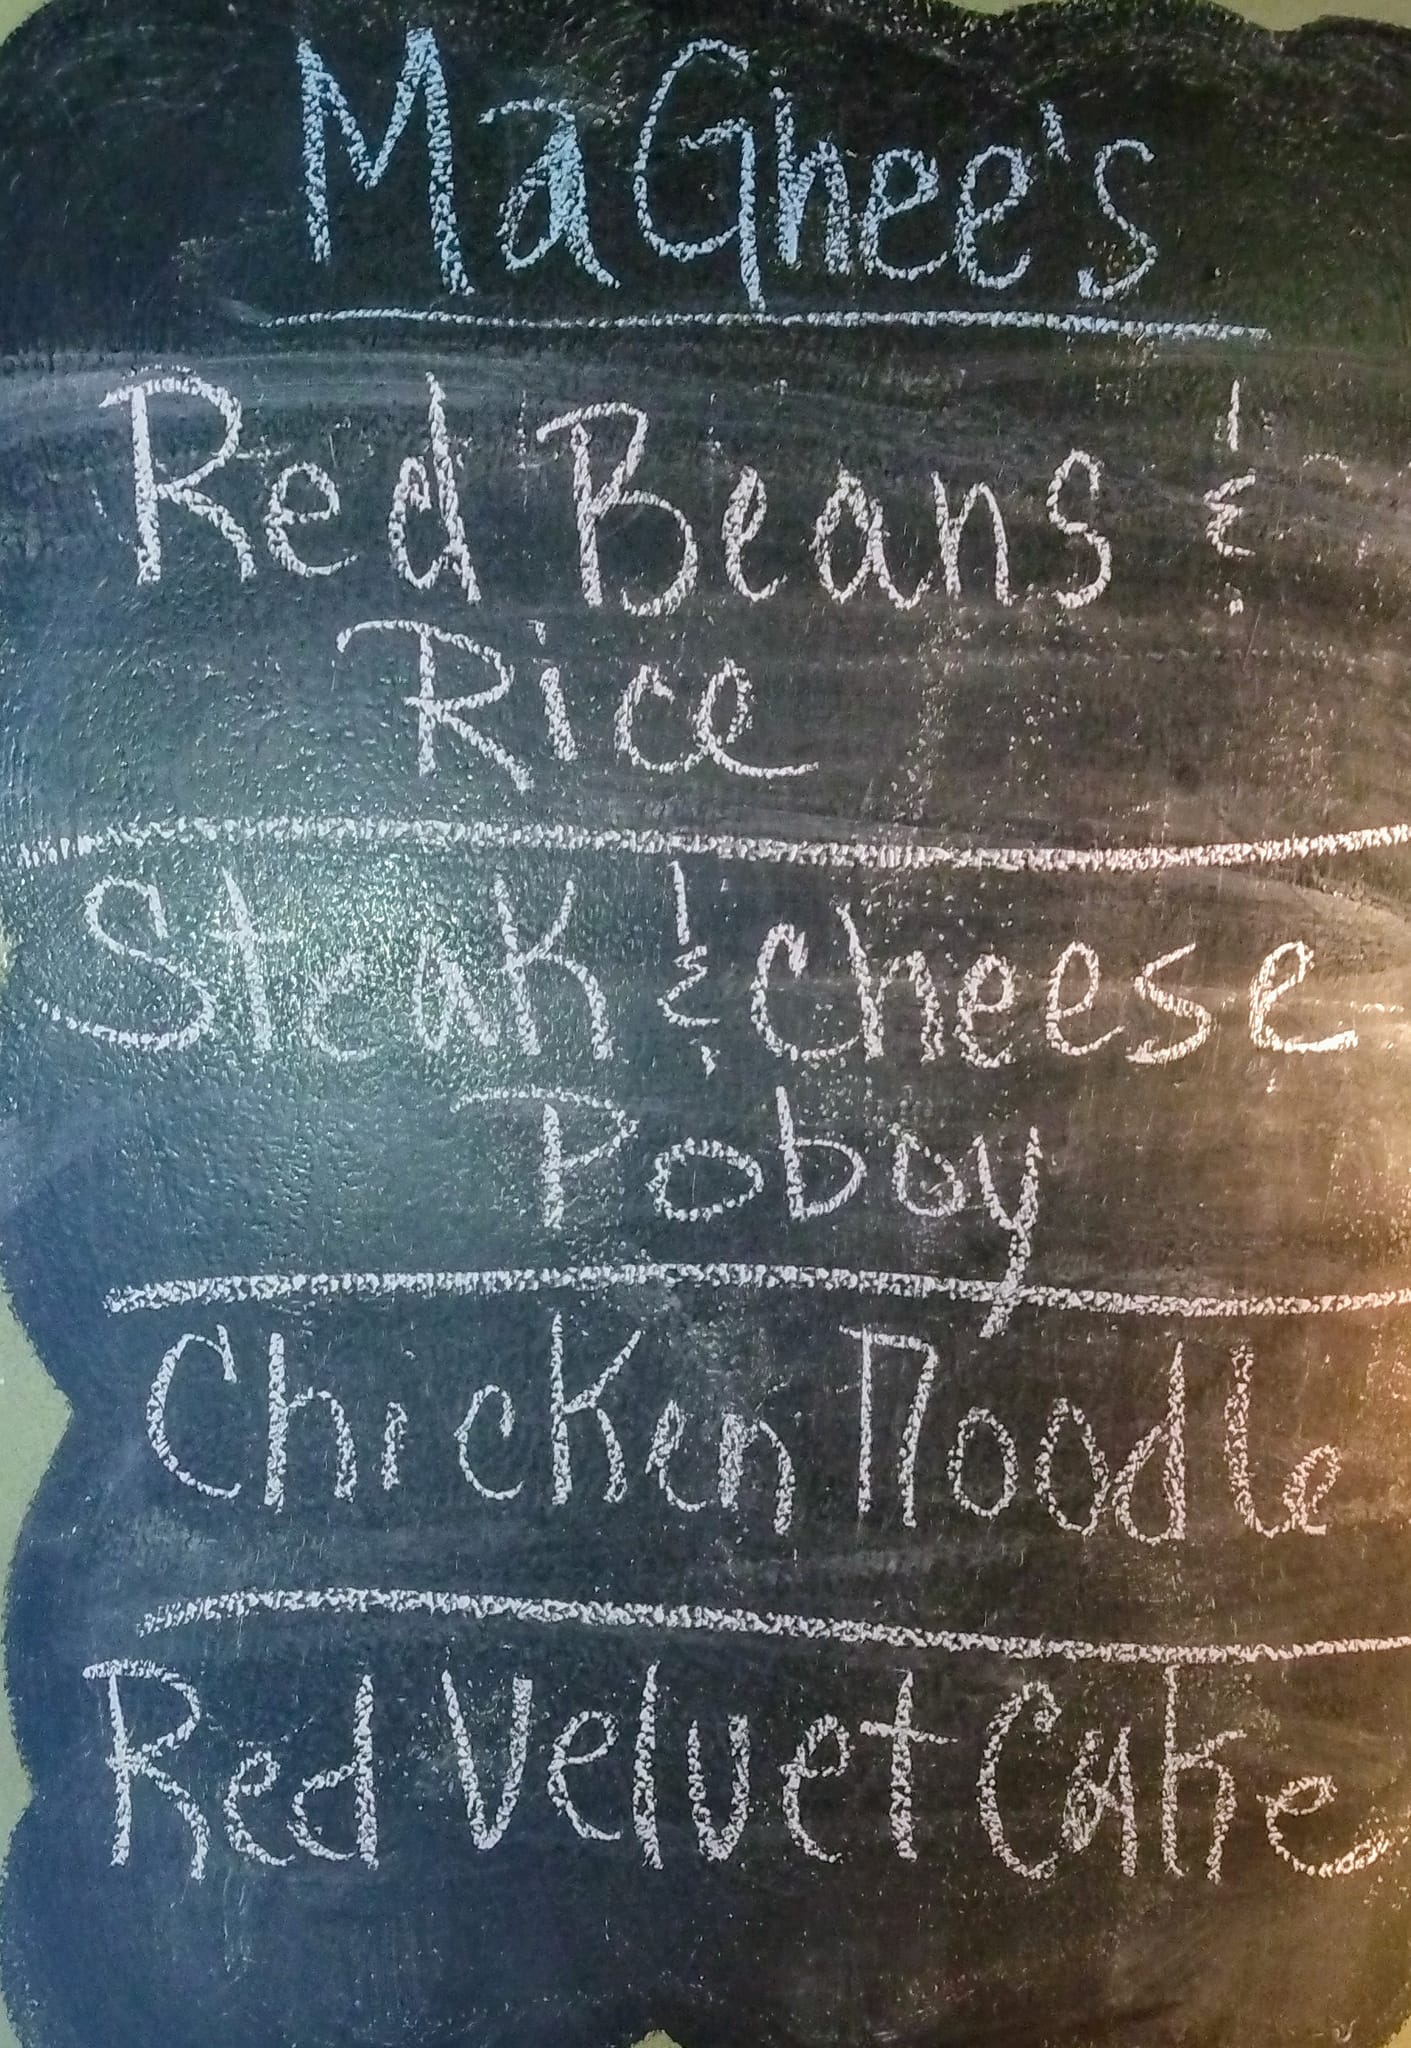 MaGhee's
Red Beans &
Rice
Steak & Cheese
Poboy
Chicken Noodle
Red Velvet Cake